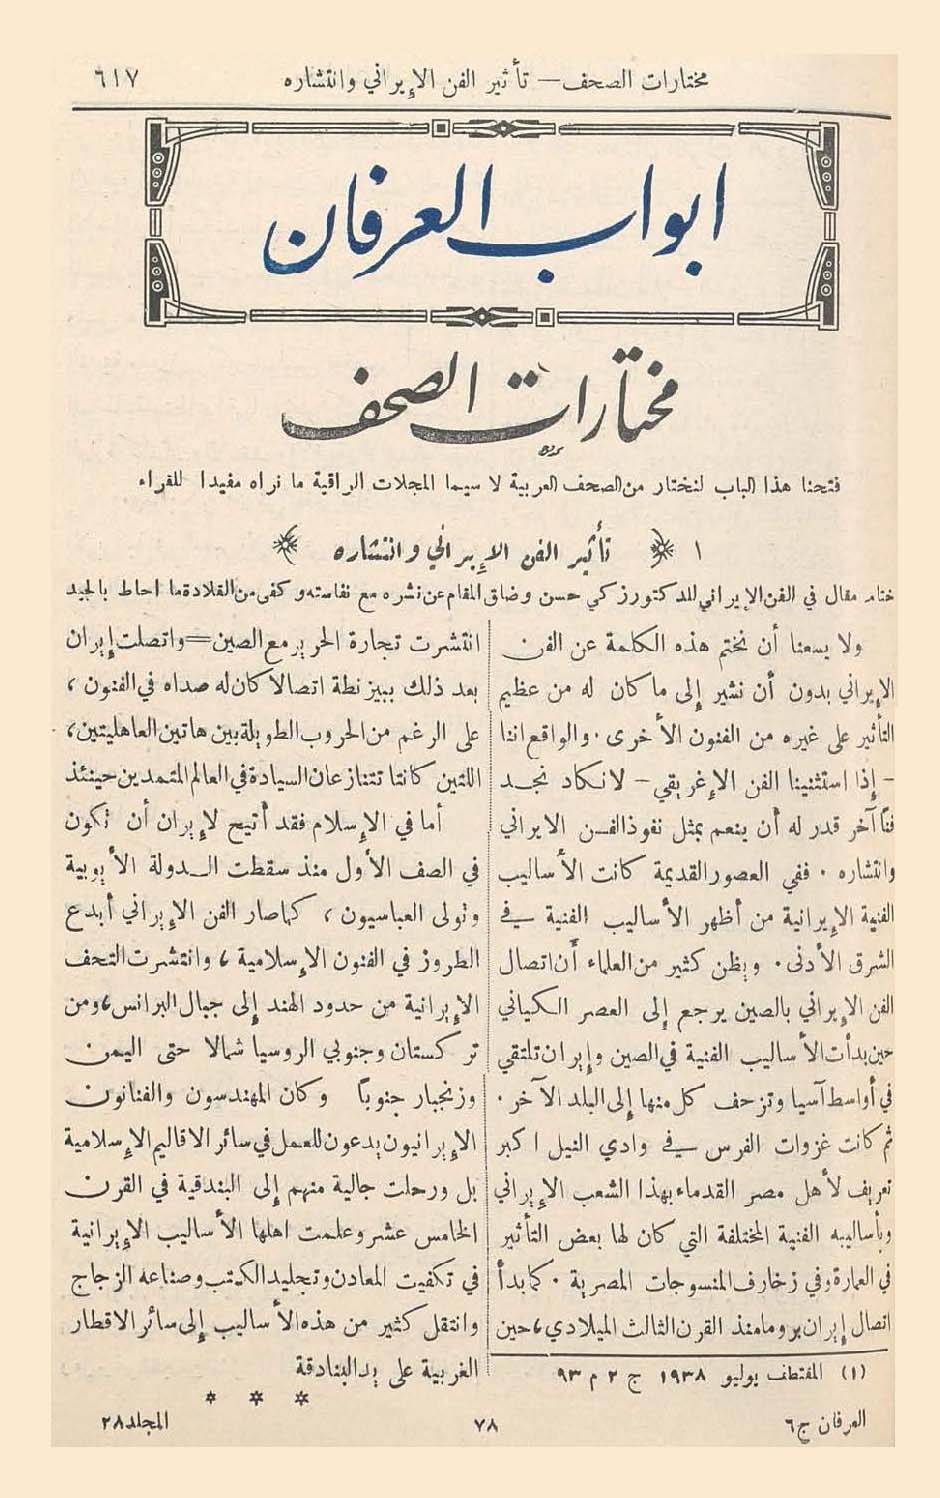 مختارات الصحف — تأثير الفن الإيراني وانتشاره
٦١٧
ابواب العرفان
مختارات الصحف
فتحنا هذا الباب لنختار من الصحف العربية لا سيما المجلات الراقية ما نراه مفيدا للقراء
١ تأثير الفن الإيراني وانتشاره
ختام مقال في الفن الايراني للدكتور زكي حسن وضاق المقام عن نشره مع نفاسته وكفى من القلادة ما احاط بالجيد
ولا يسعنا أن نختم هذه الكلمة عن الفن
الايراني بدون أن نشير إلى ما كان له من عظيم
التأثير على غيره من الفنون الأخرى. والواقع اننا
- إذا استثنينا الفن الإغريقي - لا نكاد نجد
فناً آخر قدر له أن ينعم بمثل نفوذ الفن الايراني
وانتشاره . ففي العصور القديمة كانت الأساليب
الفنية الإيرانية من أظهر الأساليب الفنية في
الشرق الأدنى. ويظن كثير من العلماء أن اتصال
الفن الإيراني بالصين يرجع إلى العصر الكياني
حين بدأت الأساليب الفنية في الصين وإيران تلتقي
في أواسط آسيا وتزحف كل منها إلى البلد الآخر .
ثم كانت غزوات الفرس في وادي النيل اكبر
تعريف لأهل مصر القدماء بهذا الشعب الإيراني
وبأساليبه الفنية المختلفة التي كان لها بعض التأثير
في العمارة وفي زخارف المنسوجات المصرية . كما بدأ
اتصال إيران بروما منذ القرن الثالث الميلادي، حين
(١) المقتطف يوليو ١٩٣٨ ج ٢ م ٩٣
انتشرت تجارة الحرير مع الصين = واتصلت إيران
بعد ذلك ببيزنطة اتصالا كان له صداه في الفنون ،
على الرغم من الحروب الطويلة بين هاتين العاهليتين،
اللتين كانتا تتنازعان السيادة في العالم المتمدين حينئذ
أما في الإسلام فقد أتيح لإيران أن تكون
في الصف الأول منذ سقطت الدولة الأموية
وتولى العباسيون ، كما صار الفن الإيراني أبدع
الطروز في الفنون الإسلامية ، وانتشرت التحف
الإيرانية من حدود الهند إلى جبال البرانس، ومن
تركستان وجنوبي الروسيا شمالا حتى اليمن
وزنجبار جنوباً وكان المهندسون والفنانون
الإيرانيون يدعون للعمل في سائر الاقاليم الإسلامية
بل ورحلت جالية منهم إلى البندقية في القرن
الخامس عشر وعلمت اهلها الأساليب الإيرانية
في تكفيت المعادن وتجليد الكتب وصناعة الزجاج
وانتقل كثير من هذه الأساليب إلى سائر الاقطار
الغربية على يد البنادقة
* * *
العرفان ج٦
٧٨
المجلد ٢٨